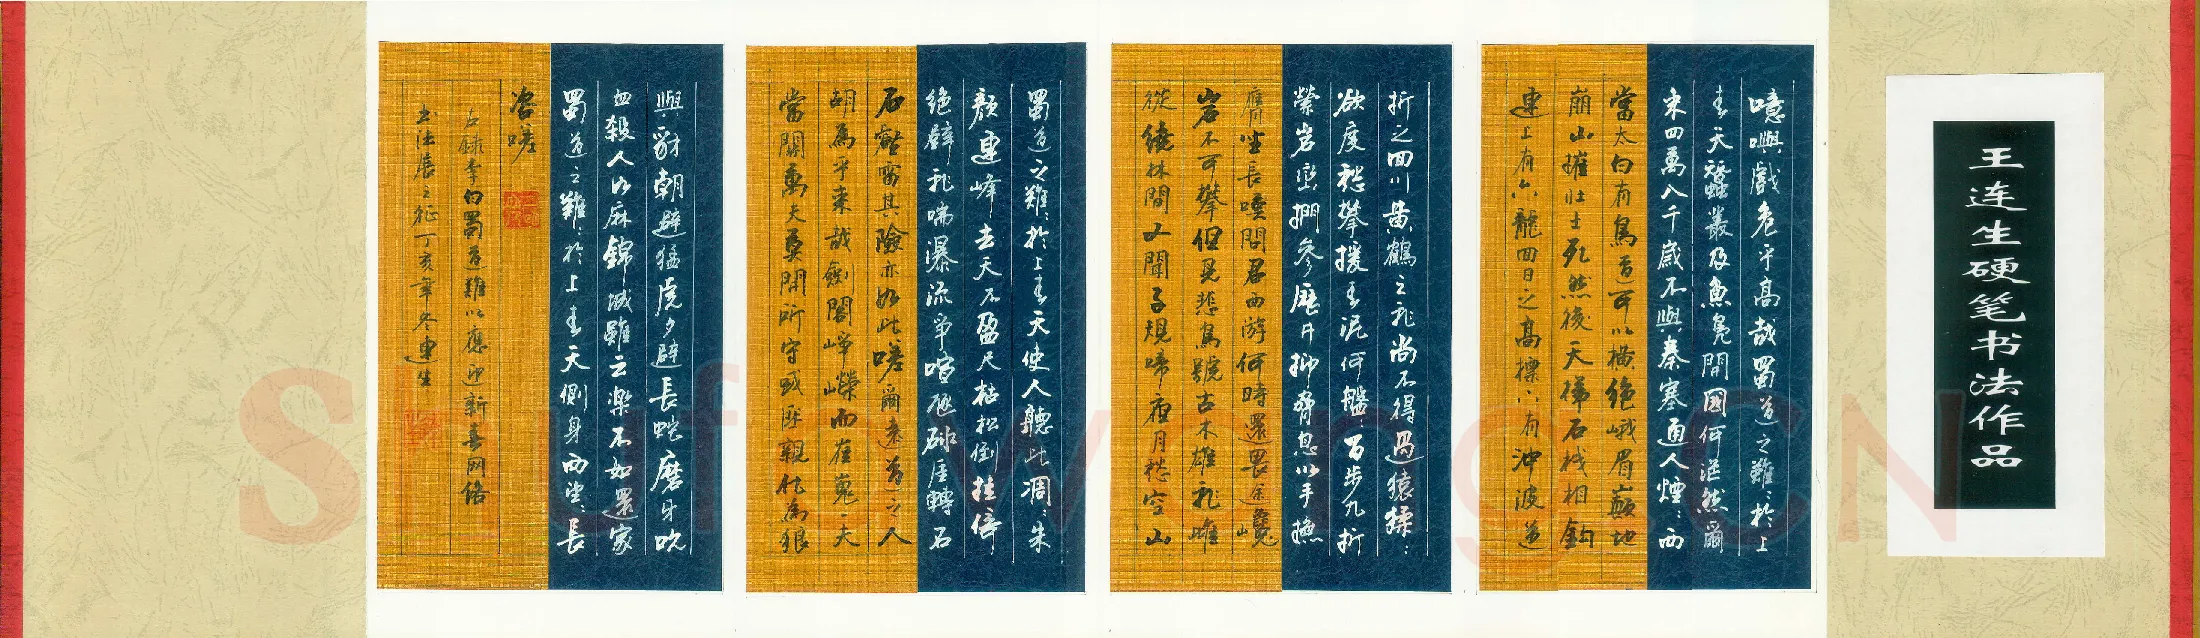 王连生硬笔书法作品
噫嘘戲危乎高哉蜀道之難〻於上
青天蠶叢及魚凫開國何茫然爾
来四萬八千歲不與秦塞通人煙〻西
當太白有鳥道可以横绝峨眉巅地
崩山摧壮士死然後天梯石栈相鉤
連上有六龍回日之高標下有沖波逆
折之回川黄鶴之飛尚不得過猿猱〻
欲度愁攀援青泥何盤〻百步九折
縈岩巒捫参歷井抑脅息以手撫
膺坐長嘆問君西游何時還畏途巉
岩不可攀但見悲鳥號古木雄飛雌
從繞林間又聞子規啼夜月愁空山
蜀道之難〻於上青天使人聽此凋〻朱
颜連峰去天不盈尺枯松倒挂倚
绝壁飛喘瀑流争喧砯崖轉石
石壑雷其險亦如此嗟爾遠道之人
胡為乎来哉劍閣崢嶸而崔嵬一夫
當關萬夫莫開所守或匪親化為狼
與豺朝避猛虎夕避長蛇磨牙吮
血殺人如麻錦城雖云樂不如還家
蜀道之難〻於上青天側身西望〻長
咨嗟
右錄李白蜀道難以應迎新春网络
書法展之征丁亥年冬連生
Shufawang.CN